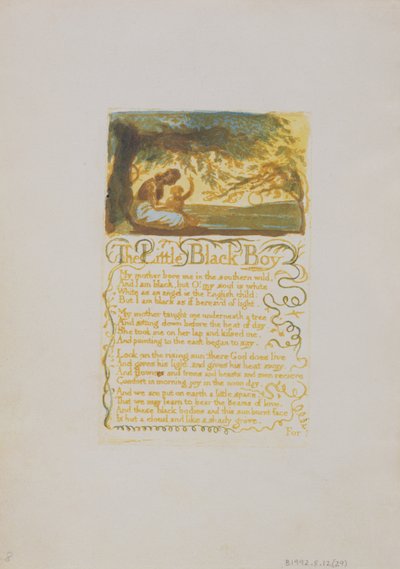 The Little Black Boy
My mother bore me in the southern wild,
And I am black, but O! my soul is white
White as an angel is the English child:
But I am black as if bereav'd of light.
My mother taught me underneath a tree
And sitting down before the heat of day
She took me on her lap and kissed me,
And pointing to the east began to say.
Look on the rising sun: there God does live
And gives his light, and gives his heat away.
And flowers and trees and beasts and men recieve
Comfort in morning joy in the noon day.
And we are put on earth a little space,
That we may learn to bear the beams of love,
And these black bodies and this sun-burnt face
Is but a cloud, and like a shady grove.
For
8
B1992.8.12(29)